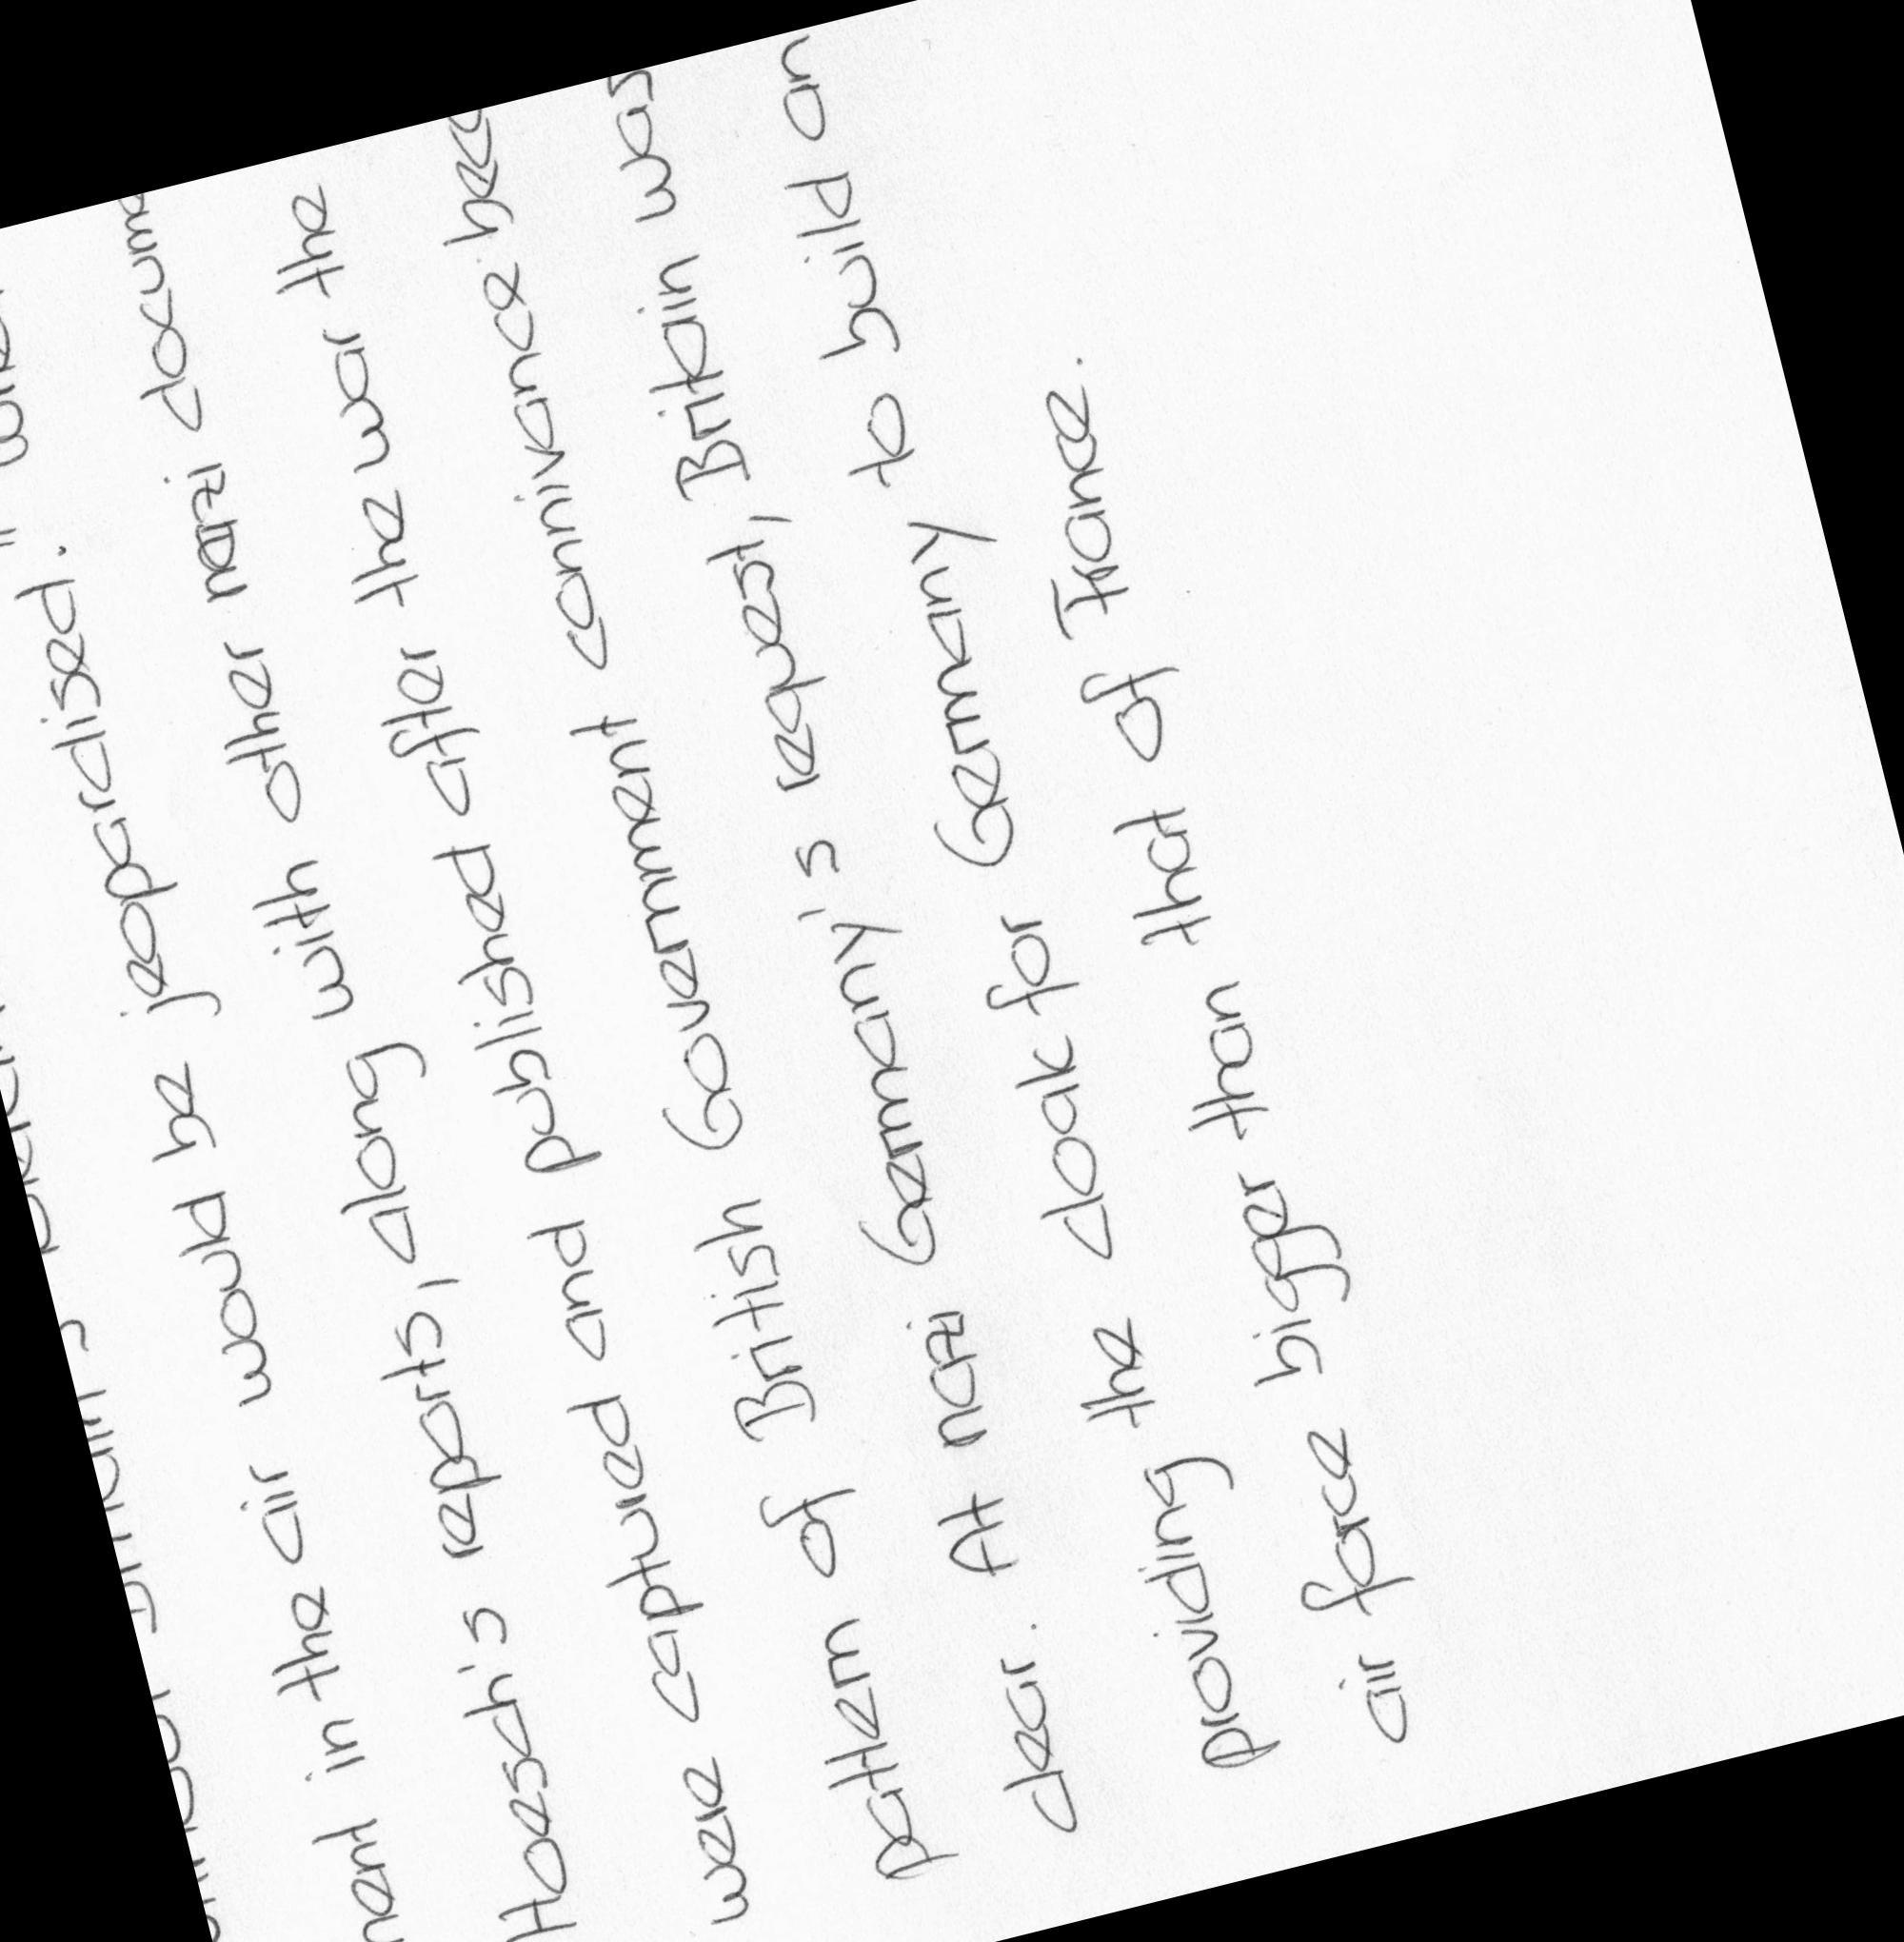 nent in the air would be jeopardised."
Hoesch's reports, along with other nazi docum
were captured and published after the war the
pattern of British Government connivance bec
clear. At nazi Germany's request, Britain was
providing the cloak for Germany to build an
air force bigger than that of France.